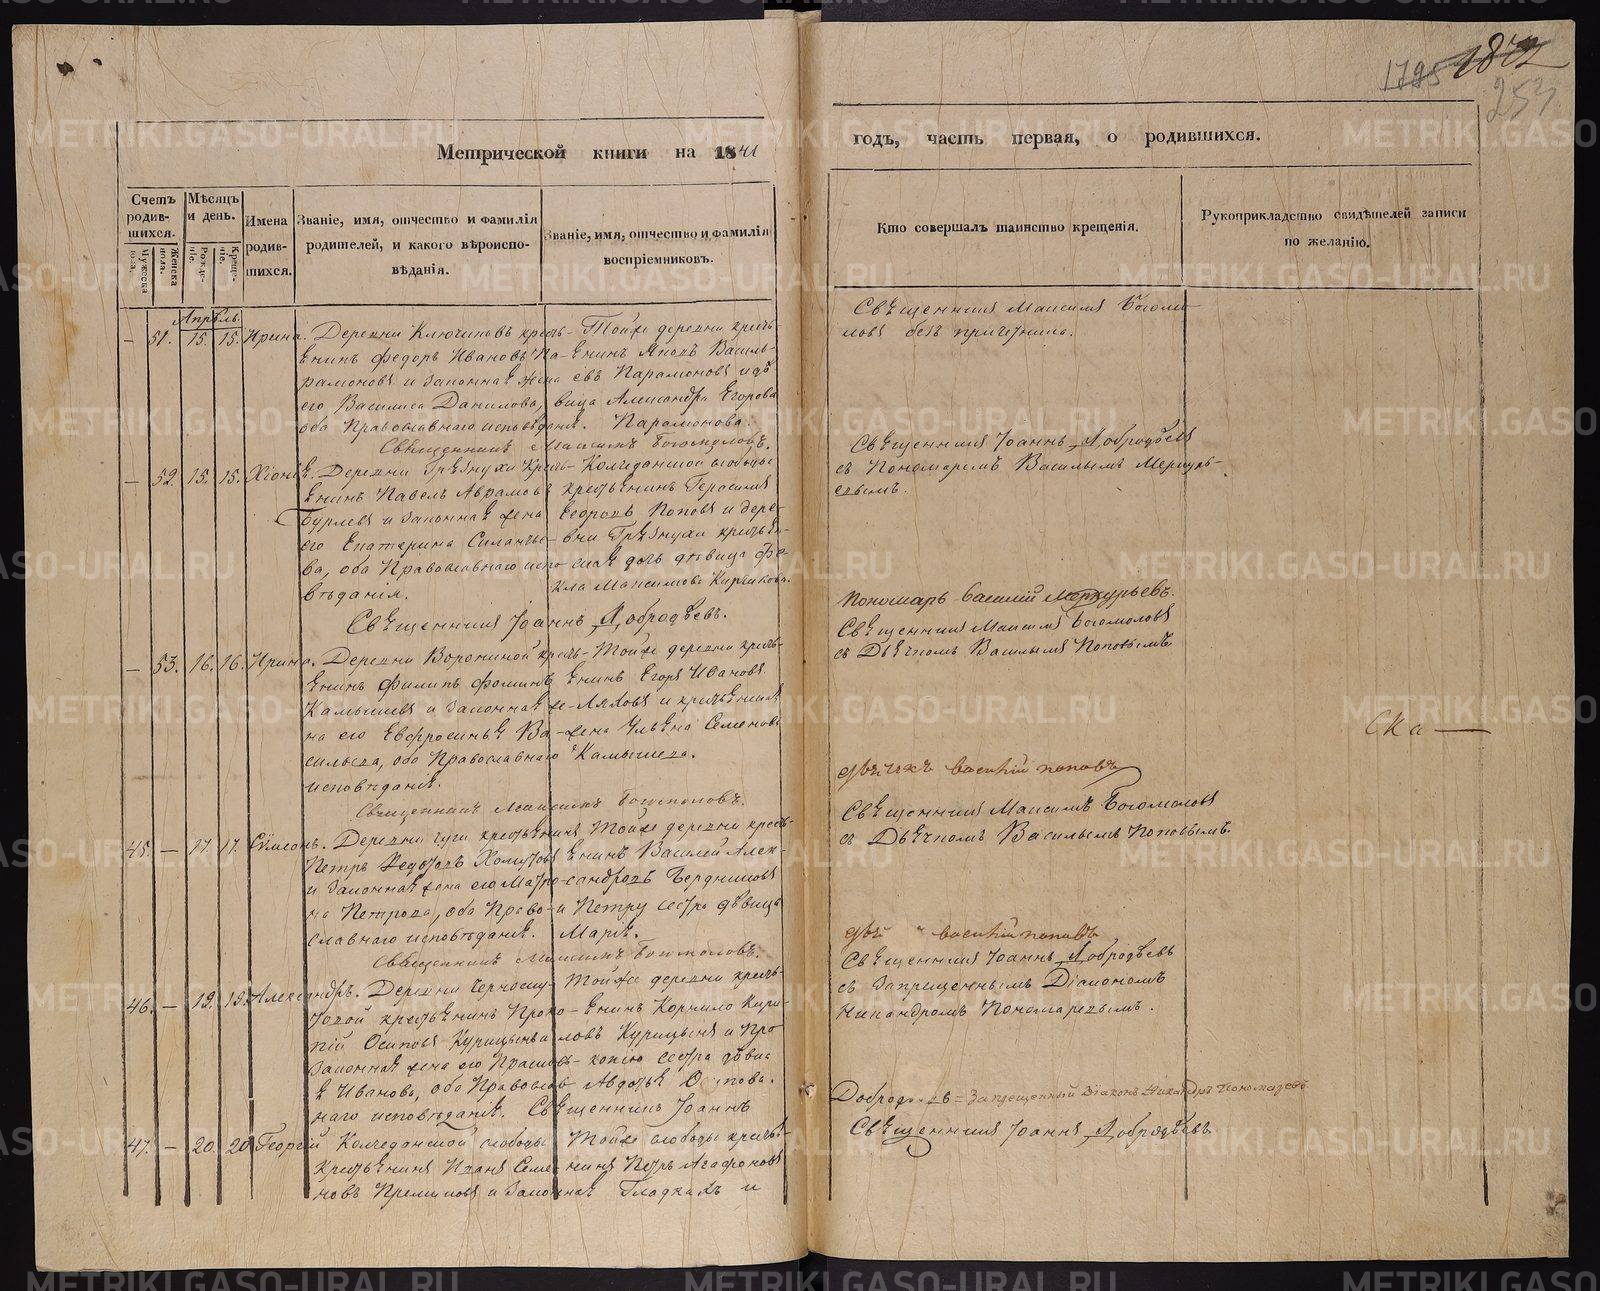 1795 1872
253
Метрической книги на 1841
годъ, часть первая, о родившихся.
Счетъ родив-шихся.
Мужеска пола.
Женска пола.
Мѣсяцъ и день.
Рожде-ніе.
Креще-ніе.
Имена родив-шихся.
Званіе, имя, отчество и фамилія
родителей, и какого вѣроиспо-
вѣданія.
Званіе, имя, отчество и фамилія
воспріемниковъ.
Кто совершалъ таинство крещенія.
Рукоприкладство свидѣтелей записи
по желанію.
Апрѣль
— 51. 15. 15. Ирина. Деревни Ключиковъ кресть-
янинъ Федоръ Ивановъ Па-
рамоновъ и законная жена
его Василиса Данилова,
оба Православнаго исповѣданія.
Тойже деревни кресть-
янинъ Яковъ Василь-
евъ Парамоновъ и дѣ
вица Александра Егорова
Парамонова.
Священникъ Максимъ Богомоловъ.
Священникъ Максимъ Богомо-
ловъ безъ причетника.
— 52. 15. 15. Хіонія. Деревни Грязнухи Кресть-
янинъ Павелъ Аврамовъ
Бурлевъ и законная жена
его Екатерина Силантье-
ва, оба Православнаго испо-
вѣданія.
Колчеданской слободы
крестьянинъ Герасимъ
Егоровъ Поповъ и дере-
вни Грязнухи крестьян-
ская дочь дѣвица Фе-
кла Максимова
Священникъ Іоаннъ Добродѣевъ.
Священникъ Іоаннъ Добродѣевъ
съ Пономаремъ Васильемъ Меркурь-
евымъ.
Пономарь Василий Меркурьевъ.
— 53. 16. 16. Ирина. Деревни Ворониной кресть-
янинъ Филипъ Фоминъ
Камышевъ и законная же-
на его Евфросинья Ва-
сильева, оба Православнаго
исповѣданія.
Тойже деревни кресть-
янинъ Егоръ Ивановъ
Ляховъ и крестьянская
жена Ульяна Семенова
Камышева.
Священникъ Максимъ Богомоловъ.
Священникъ Максимъ Богомоловъ
съ Дьячкомъ Васильемъ Поповымъ.
Ска—
дьячекъ василий поповъ
45. — 17. 17. Сѵмеонъ. Деревни крестьянинъ
Петръ Федотовъ
и законная жена его Матро-
на Петрова, оба Право-
славнаго исповѣданія.
Тойже деревни кресть-
янинъ Василей Алек-
сандровъ Бердниковъ
и Петру сестра дѣвица
Марія.
Священникъ Максимъ Богомоловъ.
Священникъ Максимъ Богомоловъ
съ Дьячкомъ Васильемъ Поповымъ.
василий поповъ
46. — 19. 19. Александръ. Деревни
крестьянинъ Проко-
пій Осиповъ Курицынъ и
законная жена его Прасковь-
я Иванова, оба Православ-
наго исповѣданія. Священникъ Іоаннъ
Тойже деревни кресть-
янинъ Корнило Кири-
ловъ Курицынъ и Про
копію сестра дѣвица
Авдотья Осипова.
Священникъ Іоаннъ Добродѣевъ
съ Запрещеннымъ Діакономъ
Никандромъ Пономаревымъ.
Добродѣевъ = Запрещенный Діаконъ Никандръ Пономаревъ
47. — 20. 20. Георгій Колчеданской слободы
Крестьянинъ Иванъ Семе-
новъ и законная
Тойже слободы крестья-
нинъ Петръ Агафоновъ
Гладкихъ и
Священникъ Іоаннъ Добродѣевъ
METRIKI.GASO-URAL.RU